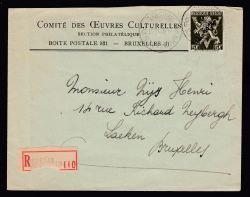 COMITÉ DES ŒUVRES CULTURELLES
SECTION PHILATÉLIQUE
BOITE POSTALE 821 — BRUXELLES
Monsieur Gijs Henri
14 rue Richard Neybergh
Laeken
Bruxelles
R
110